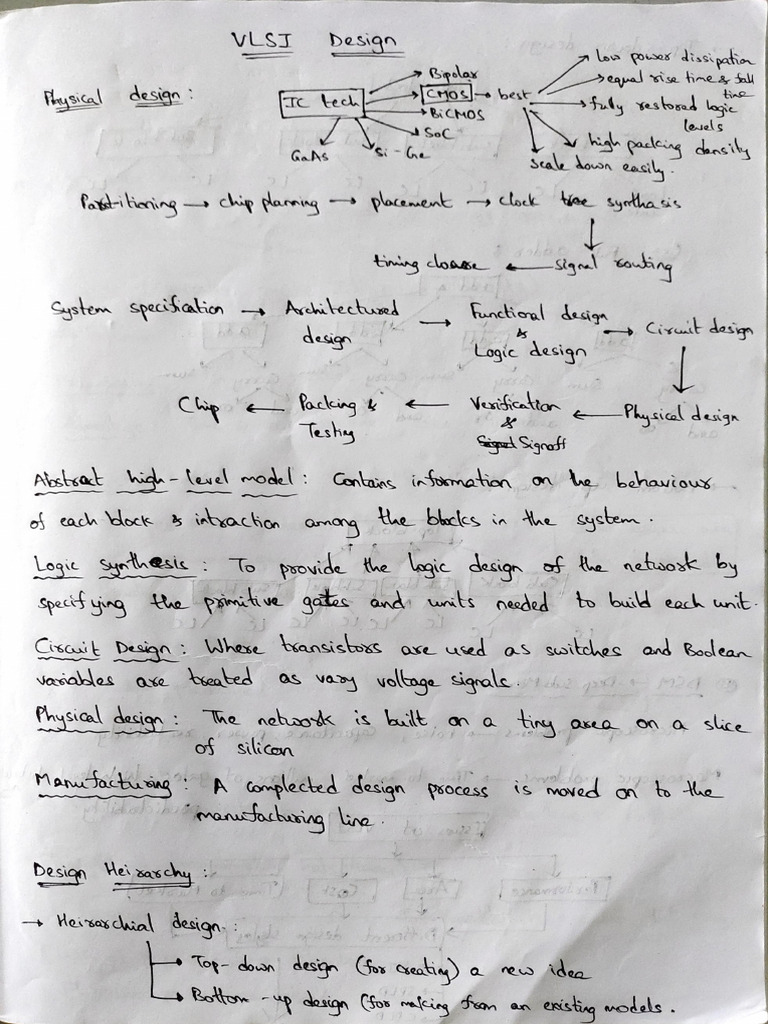 VLSI Design
Physical design :
IC tech
Bipolar
CMOS → best
BiCMOS
SoC
Si-Ge
GaAs
low power dissipation
equal rise time & fall time
fully restored logic levels
high packing density
scale down easily.
Partitioning → chip planning → placement → clock tree synthasis
timing closure ← signal routing
System specification → Architectured design → Functional design & Logic design → Circuit design
Chip ← Packing & Testing ← Verification & Signoff ← Physical design
Abstract high-level model : Contains information on the behaviour
of each block & intraction among the blocks in the system.
Logic synthesis : To provide the logic design of the network by
specifying the primitive gates and units needed to build each unit.
Circuit Design : Where transistors are used as switches and Boolean
variables are treated as vary voltage signals.
Physical design : The network is built on a tiny area on a slice
of silicon
Manufacturing : A complected design process is moved on to the
manufacturing line.
Design Heirarchy :
→ Heirarchial design :
→ Top-down design (for creating) a new idea
→ Bottom-up design (for making from an existing models.